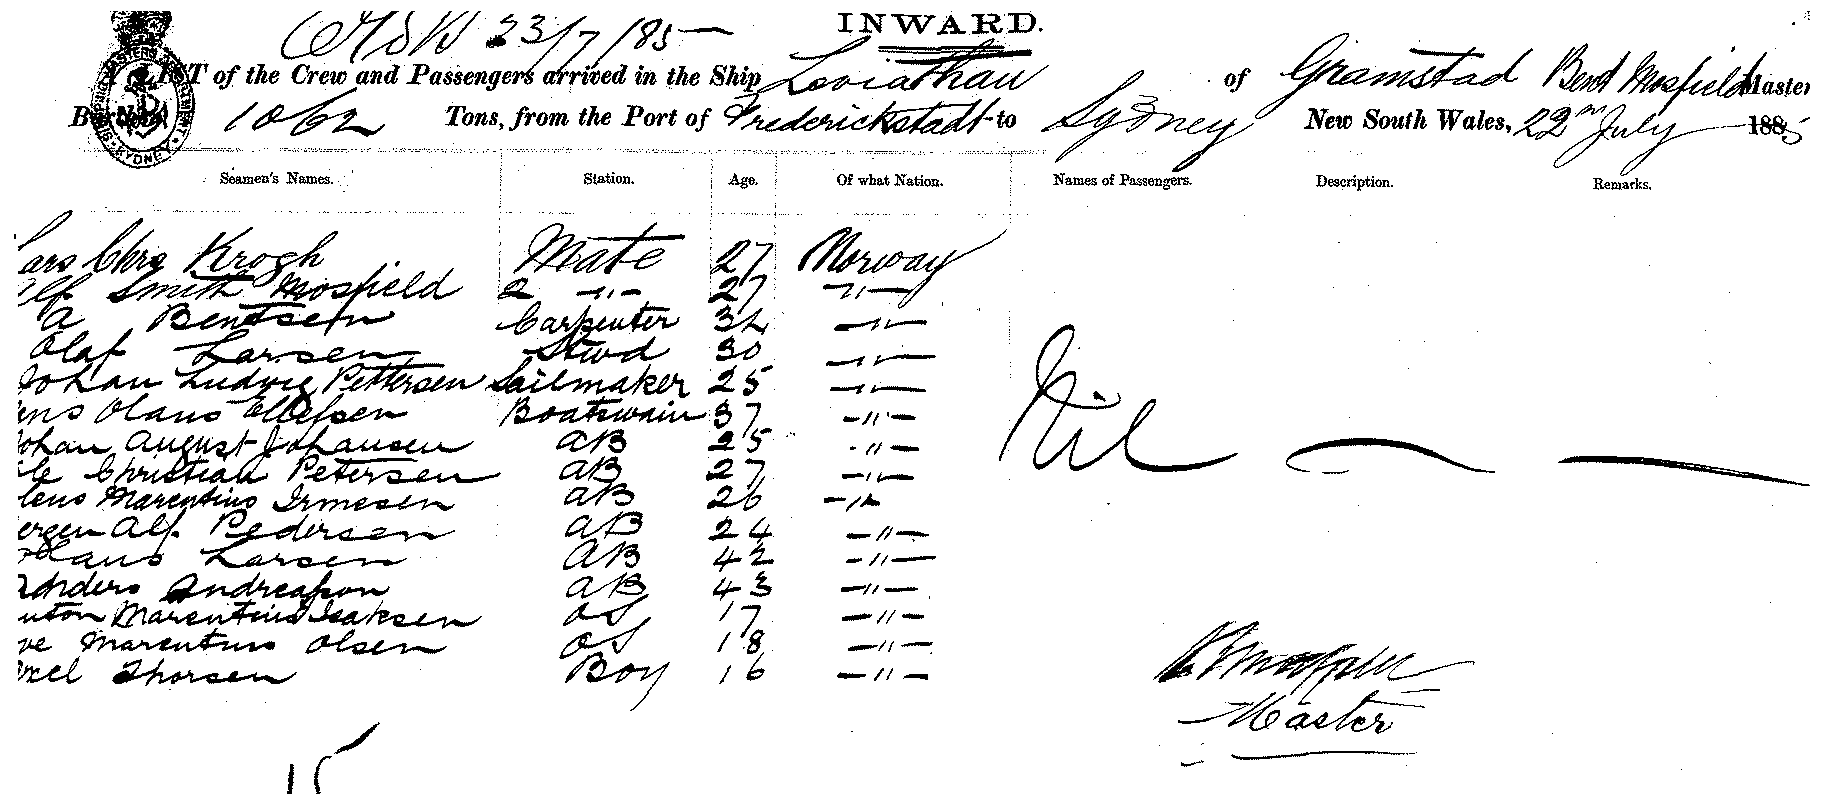 23/7/85 INWARD.
LIST of the Crew and Passengers arrived in the Ship Leviathan of Grimstad Bend Mosfield Master
Burthen 1062 Tons, from the Port of Frederickstadt to Sydney New South Wales, 22nd July 1885
Seamen's Names. Station. Age. Of what Nation. Names of Passengers. Description. Remarks.
Lars Chrs Krogh Mate 27 Norway
Alf Smith Mosfield 2 -"- 27 -"-
A Bentsen Carpenter 32 -"-
Olaf Larsen Stwd 30 -"-
Johan Ludvig Pettersen Sailmaker 25 -"-
ens Olaus Ellefsen Boatswain 37 -"-
Johan August Johansen AB 25 -"-
Christian Petersen AB 27 -"-
Marentius Irmesen AB 26 -"-
ergen Alf. Pedersen AB 24 -"-
Larsen AB 42 -"-
Anders Andreasson AB 43 -"-
nton Marentius Isaksen OS 17 -"-
ve Marentius Olsen OS 18 -"-
xel Thorsen Boy 16 -"-
Nil
Master
15
SYDNEY